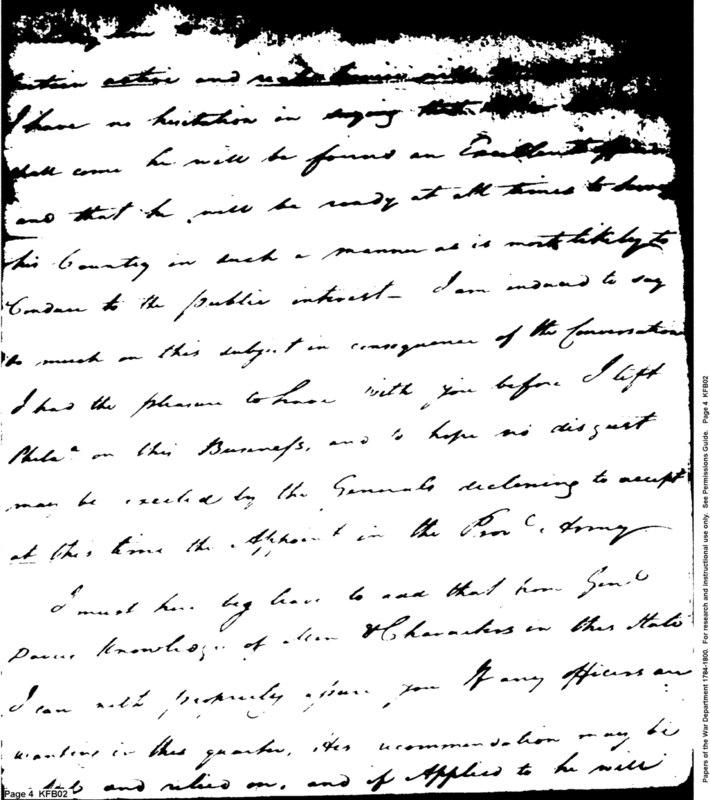 active and
I have no hesitation in saying that
shall come he will be found an Excellent officer
and that he will be ready at all times to serve
his Country in such a manner as is most likely to
Conduce to the public interest — I am induced to say
so much on this subject in consequence of the Conversation
I had the pleasure to have with you before I left
Phila.a on this Business, and to hope no disgust
may be excited by the Generals declining to accept
at this time the Appoint in the Prov.l Army
I must here beg leave to add that from Gen.l
Davies Knowledge of Men & Characters in this State
I can with propriety assure you If any officers are
wanting in this quarter, His recommendation may be
and relied on, and if Applied to he will
Page 4 KFB02
Papers of the War Department 1784-1800. For research and instructional use only. See Permissions Guide. Page 4 KFB02